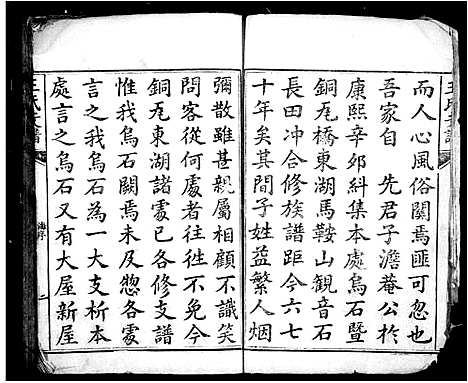 而人心風俗關焉匪可忽也
吾家自 先君子澹菴公於
康熙辛夘糾集本處烏石暨
銅瓦橋東湖馬鞍山觀音石
長田冲合修族譜距今六七
十年矣其間子姓益繁人烟
彌散雖甚親屬相顧不識笑
問客從何處者徃徃不免今
銅瓦東湖諸處已各修支譜
惟我烏石闕焉未及惣各處
言之我烏石為一大支析本
處言之烏石又有大屋新屋
二